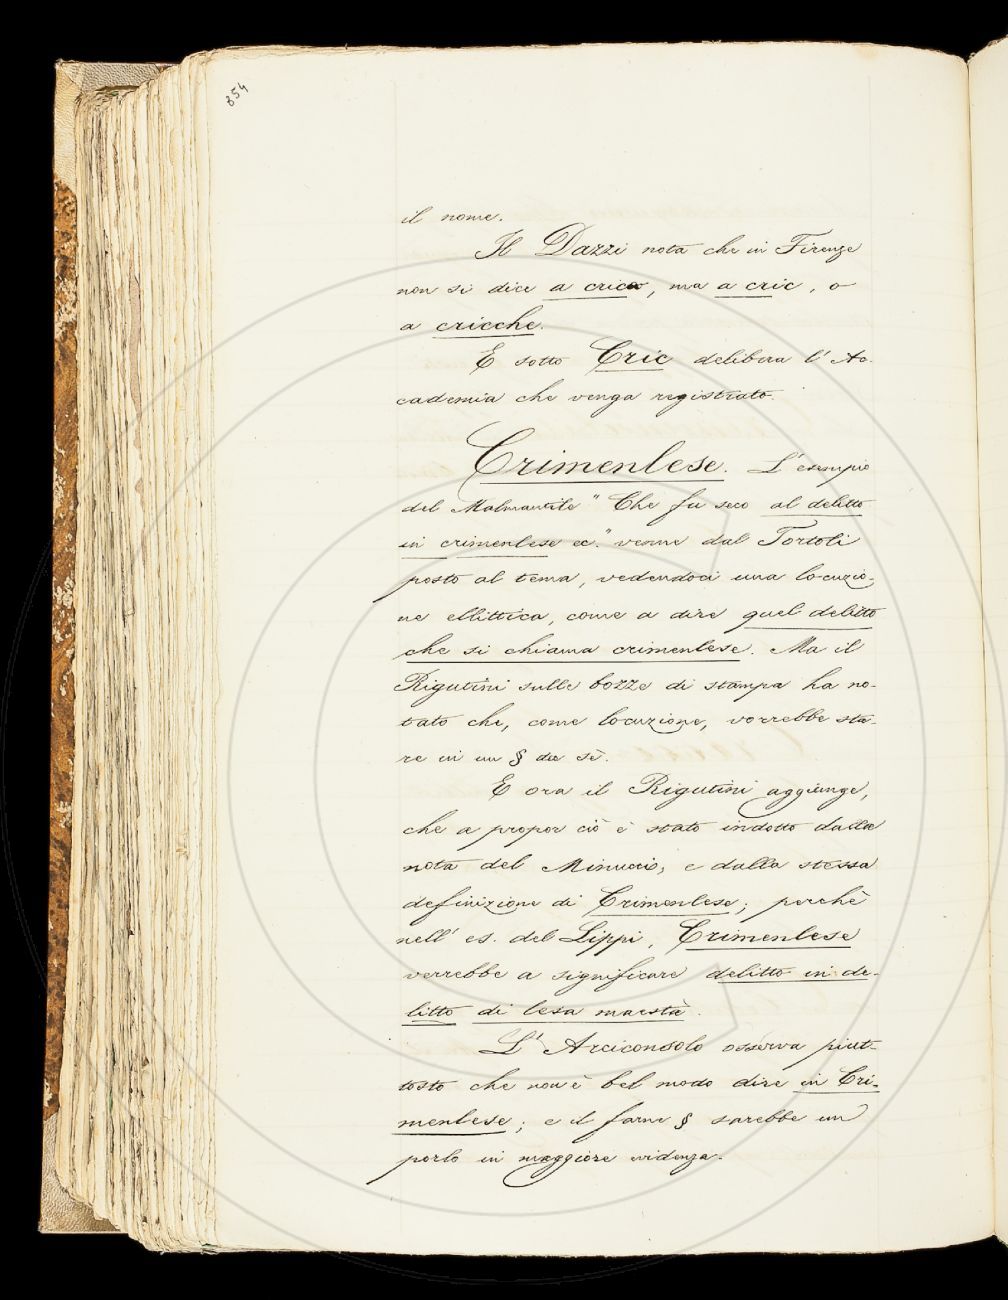 854
il nome.
Il Dazzi nota che in Firenze
non si dice a cricco, ma a cric, o
a cricche.
E sotto Cric delibera l'Ac-
cademia che venga registrato.
Crimenlese. L'esempio
del Malmantile "Che fu seco al delitto
in crimenlese ec." venne dal Tortoli
posto al tema, vedendoci una locuzio-
ne ellittica, come a dire quel delitto
che si chiama crimenlese. Ma il
Rigutini sulle bozze di stampa ha no-
tato che, come locuzione, vorrebbe sta-
re in un § da sè.
E ora il Rigutini aggiunge,
che a propor ciò è stato indotto dalla
nota del Minucci, e dalla stessa
definizione di Crimenlese; perchè
nell'es. del Lippi, Crimenlese
verrebbe a significare delitto in de-
litto di lesa maestà.
L'Arciconsolo osserva piut-
tosto che non è bel modo dire in Cri-
menlese; e il farne § sarebbe un
porlo in maggiore evidenza.